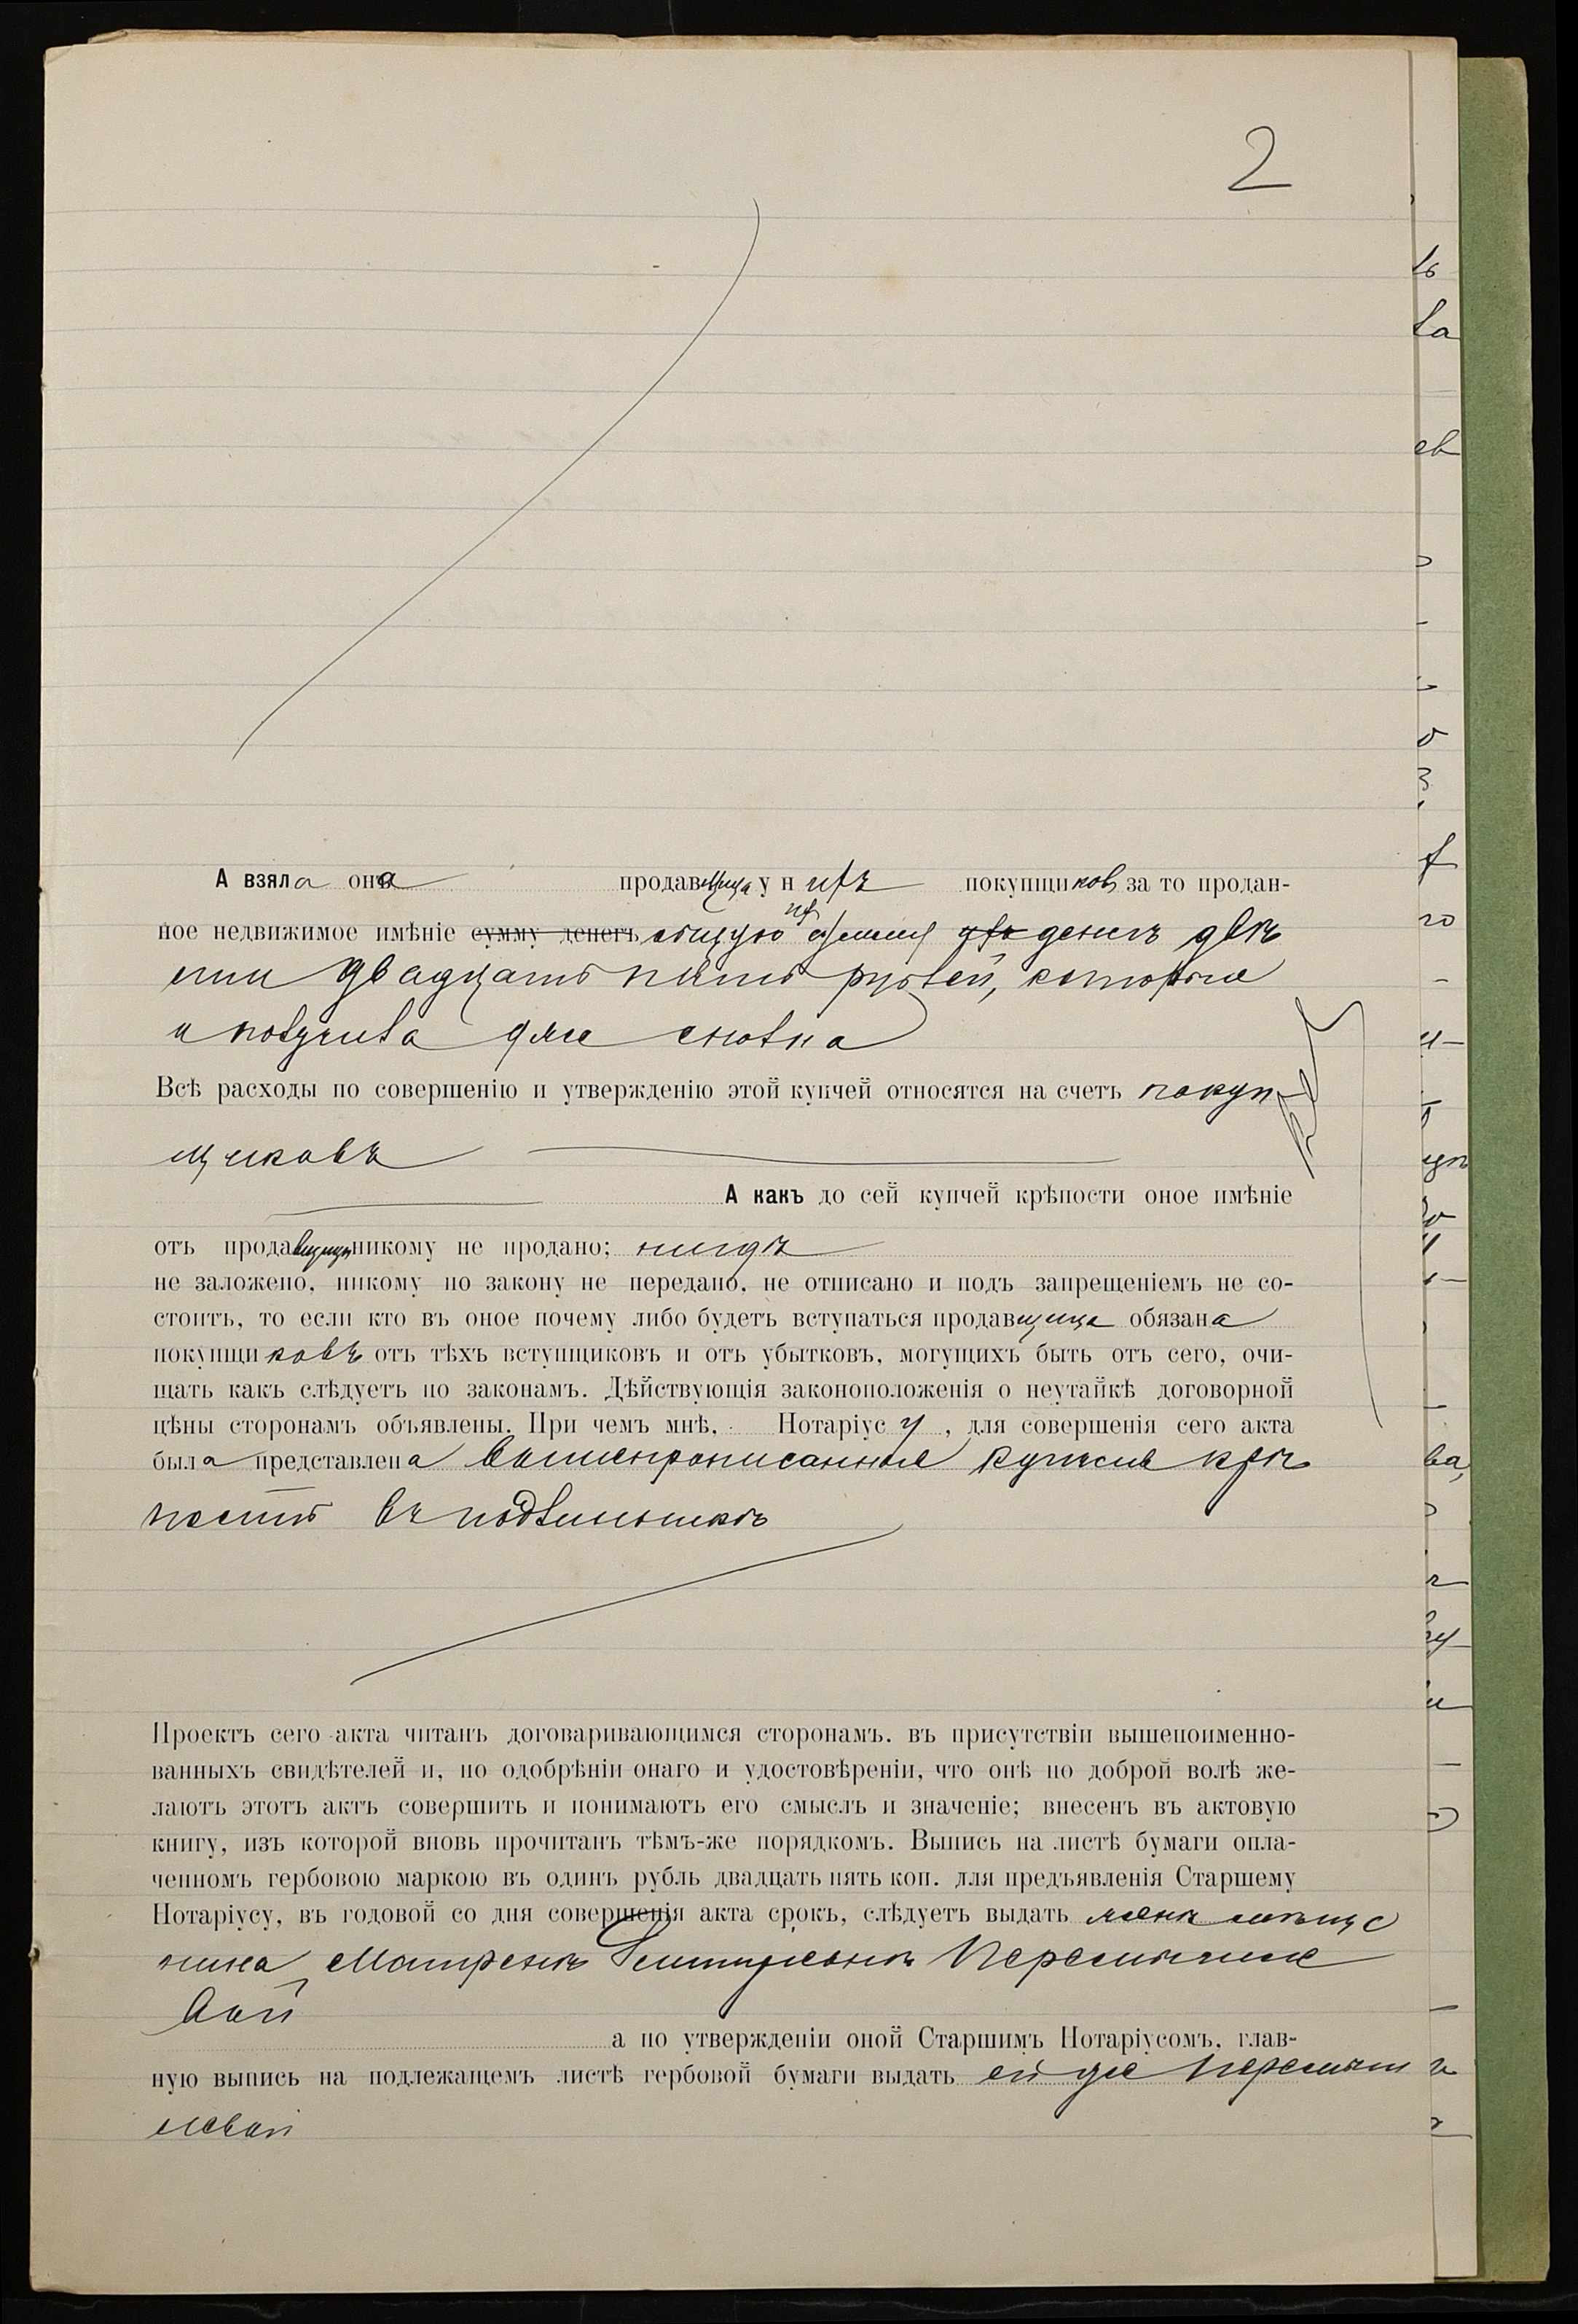 2
А взяла она продавщица у нихъ покупщиковъ за то продан-
ное недвижимое имѣніе сумму денегъ общую суммою денегъ двѣ
сти двадцать пять рублей, которые
и получила уже сполна
Всѣ расходы по совершенію и утвержденію этой купчей относятся на счетъ покуп-
щиковъ
А какъ до сей купчей крѣпости оное имѣніе
отъ продавщицы никому не продано; нигдѣ
не заложено, никому по закону не передано, не отписано и подъ запрещеніемъ не со-
стоитъ, то если кто въ оное почему либо будетъ вступаться продавщица обязана
покупщиковъ отъ тѣхъ вступщиковъ и отъ убытковъ, могущихъ быть отъ сего, очи-
щать какъ слѣдуетъ по законамъ. Дѣйствующія законоположенія о неутайкѣ договорной
цѣны сторонамъ объявлены. При чемъ мнѣ, Нотаріусу, для совершенія сего акта
была представлена вышепрописанная купчая крѣ
пость въ подлинникѣ
Проектъ сего акта читанъ договаривающимся сторонамъ. въ присутствіи вышепоименно-
ванныхъ свидѣтелей и, по одобрѣніи онаго и удостовѣреніи, что онѣ по доброй волѣ же-
лаютъ этотъ актъ совершить и понимаютъ его смыслъ и значеніе; внесенъ въ актовую
книгу, изъ которой вновь прочитанъ тѣмъ-же порядкомъ. Выпись на листѣ бумаги опла-
ченномъ гербовою маркою въ одинъ рубль двадцать пять коп. для предъявленія Старшему
Нотаріусу, въ годовой со дня совершенія акта срокъ, слѣдуетъ выдать женѣ мѣща
нина Матренѣ
вой
а по утвержденіи оной Старшимъ Нотаріусомъ, глав-
ную выпись на подлежащемъ листѣ гербовой бумаги выдать ей же